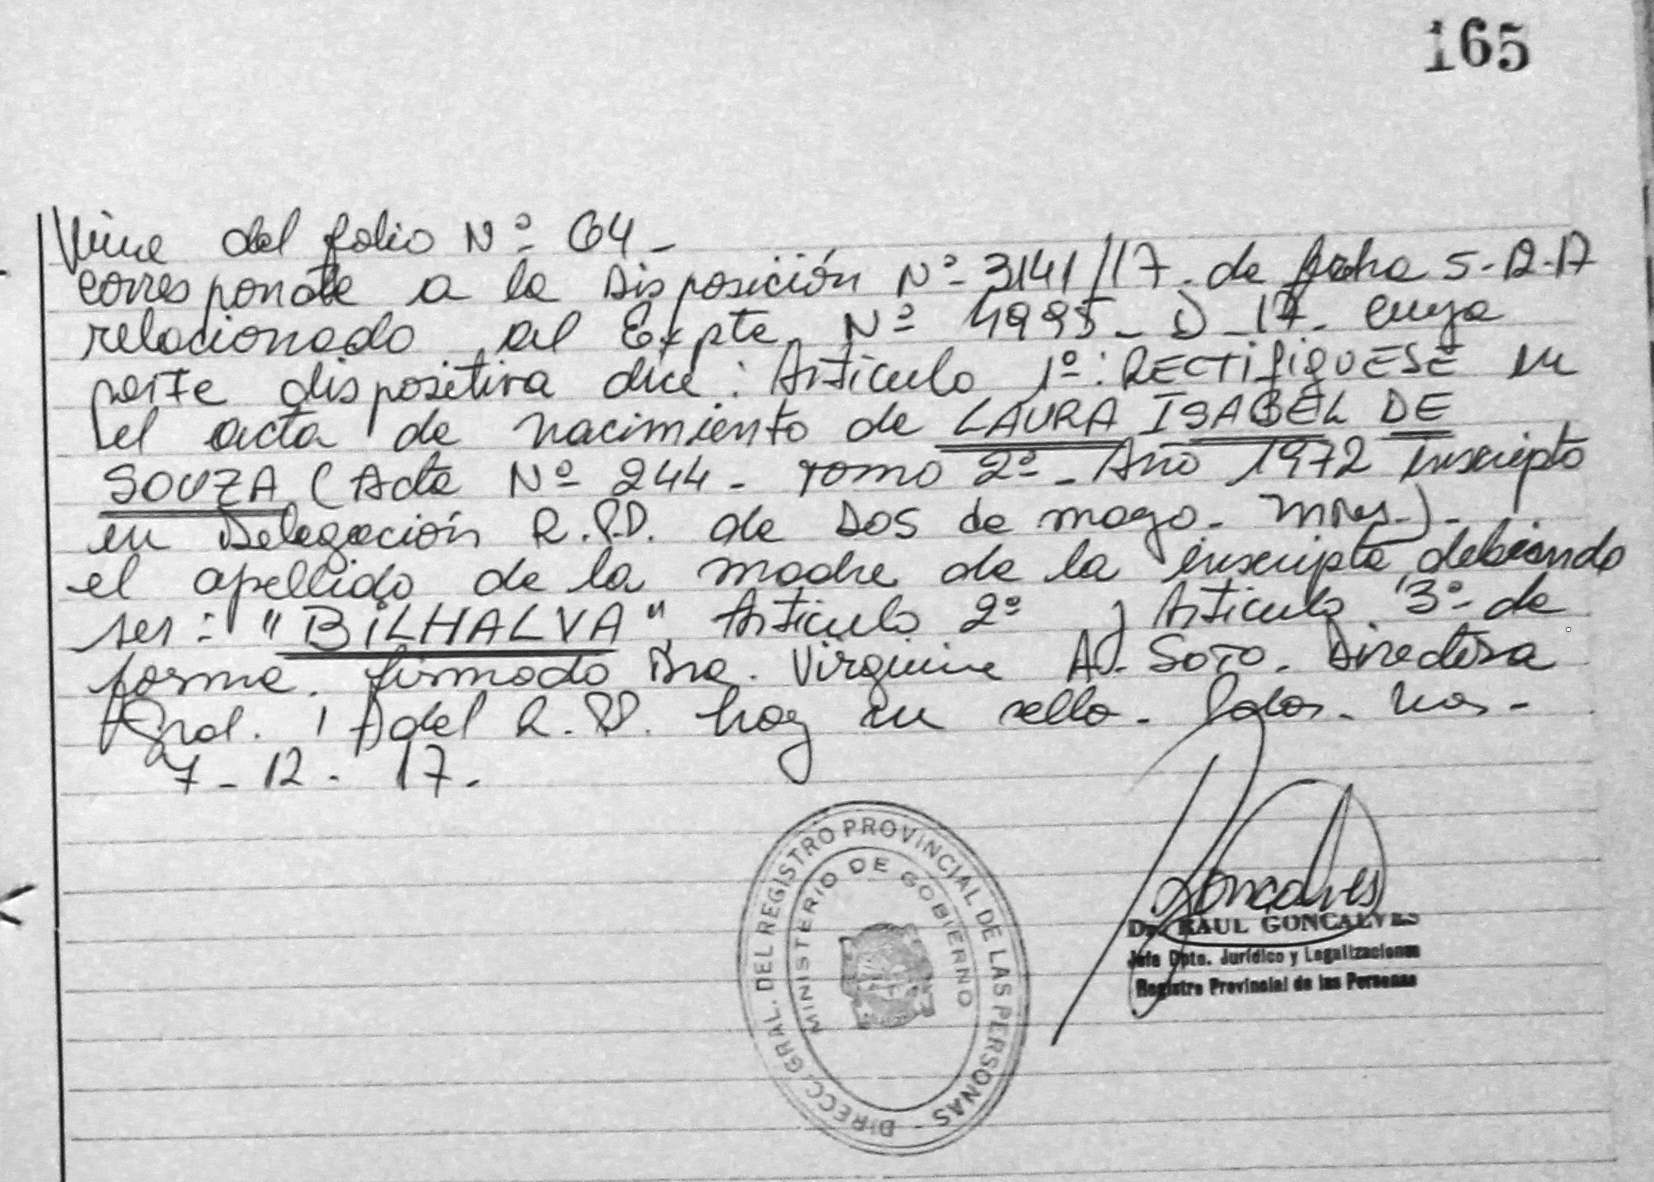 165
Viene del folio Nº 64-
corresponde a la Disposición Nº 3141/17. de fecha 5-12-17
relacionado al Expte. Nº 4995-D-17- cuya
parte dispositiva dice: Artículo 1º: RECTIFIQUESE en
el acta de nacimiento de LAURA ISABEL DE
SOUZA (Acta Nº 244- Tomo 2º- Año 1972 inscripto
en Delegación R.P.P. de Dos de mayo- Mnes.)-
el apellido de la madre de la inscripta debiendo
ser: "BILHALVA" Artículo 2º y Artículo 3º- de
forma. firmado Dra. Virginia A. Soto. Directora
Gral. del R.P.P. hay un sello- Pdas. Mns-
7-12-17.
DIRECC. GRAL. DEL REGISTRO PROVINCIAL DE LAS PERSONAS -
MINISTERIO DE GOBIERNO
Goncalves
Dr. RAUL GONCALVES
Jefe Dpto. Jurídico y Legalizaciones
Registro Provincial de las Personas